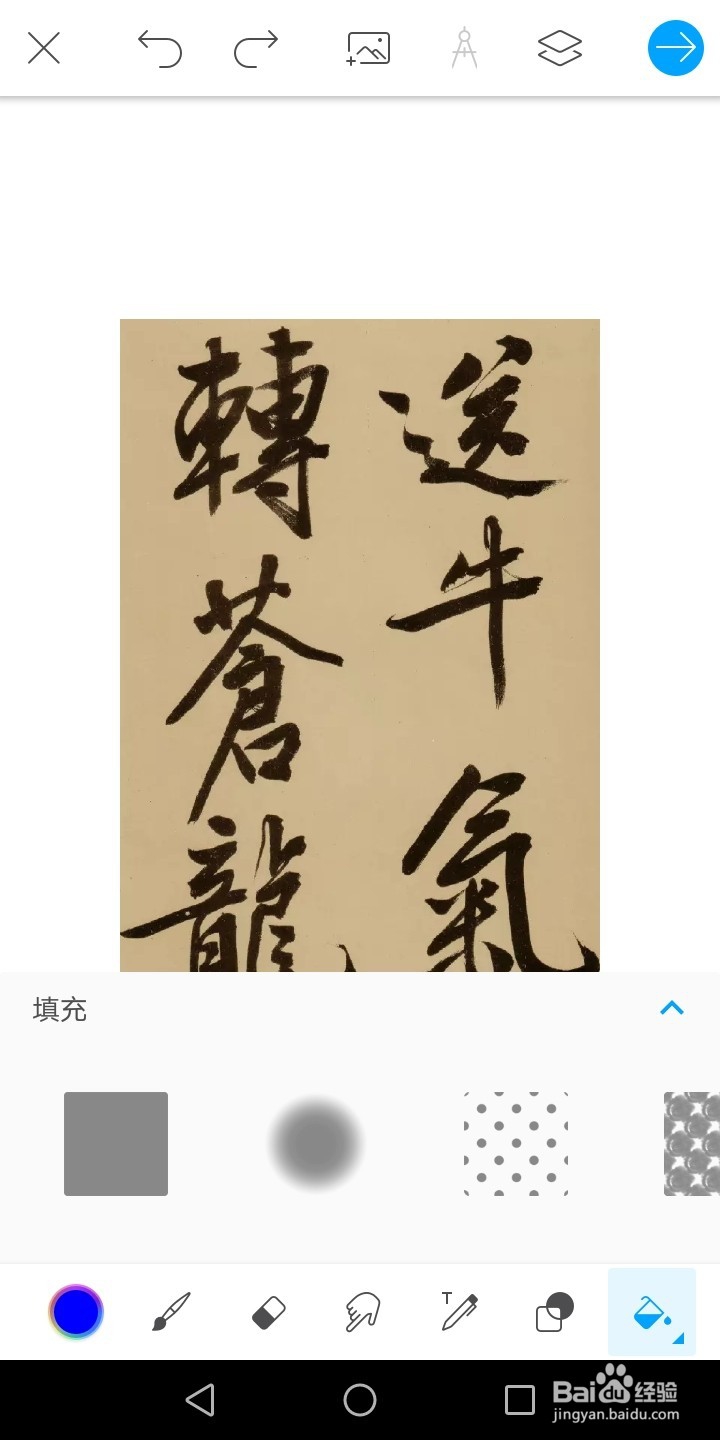 送牛氣
轉蒼龍
填充
T
Bai du 经验
jingyan.baidu.com